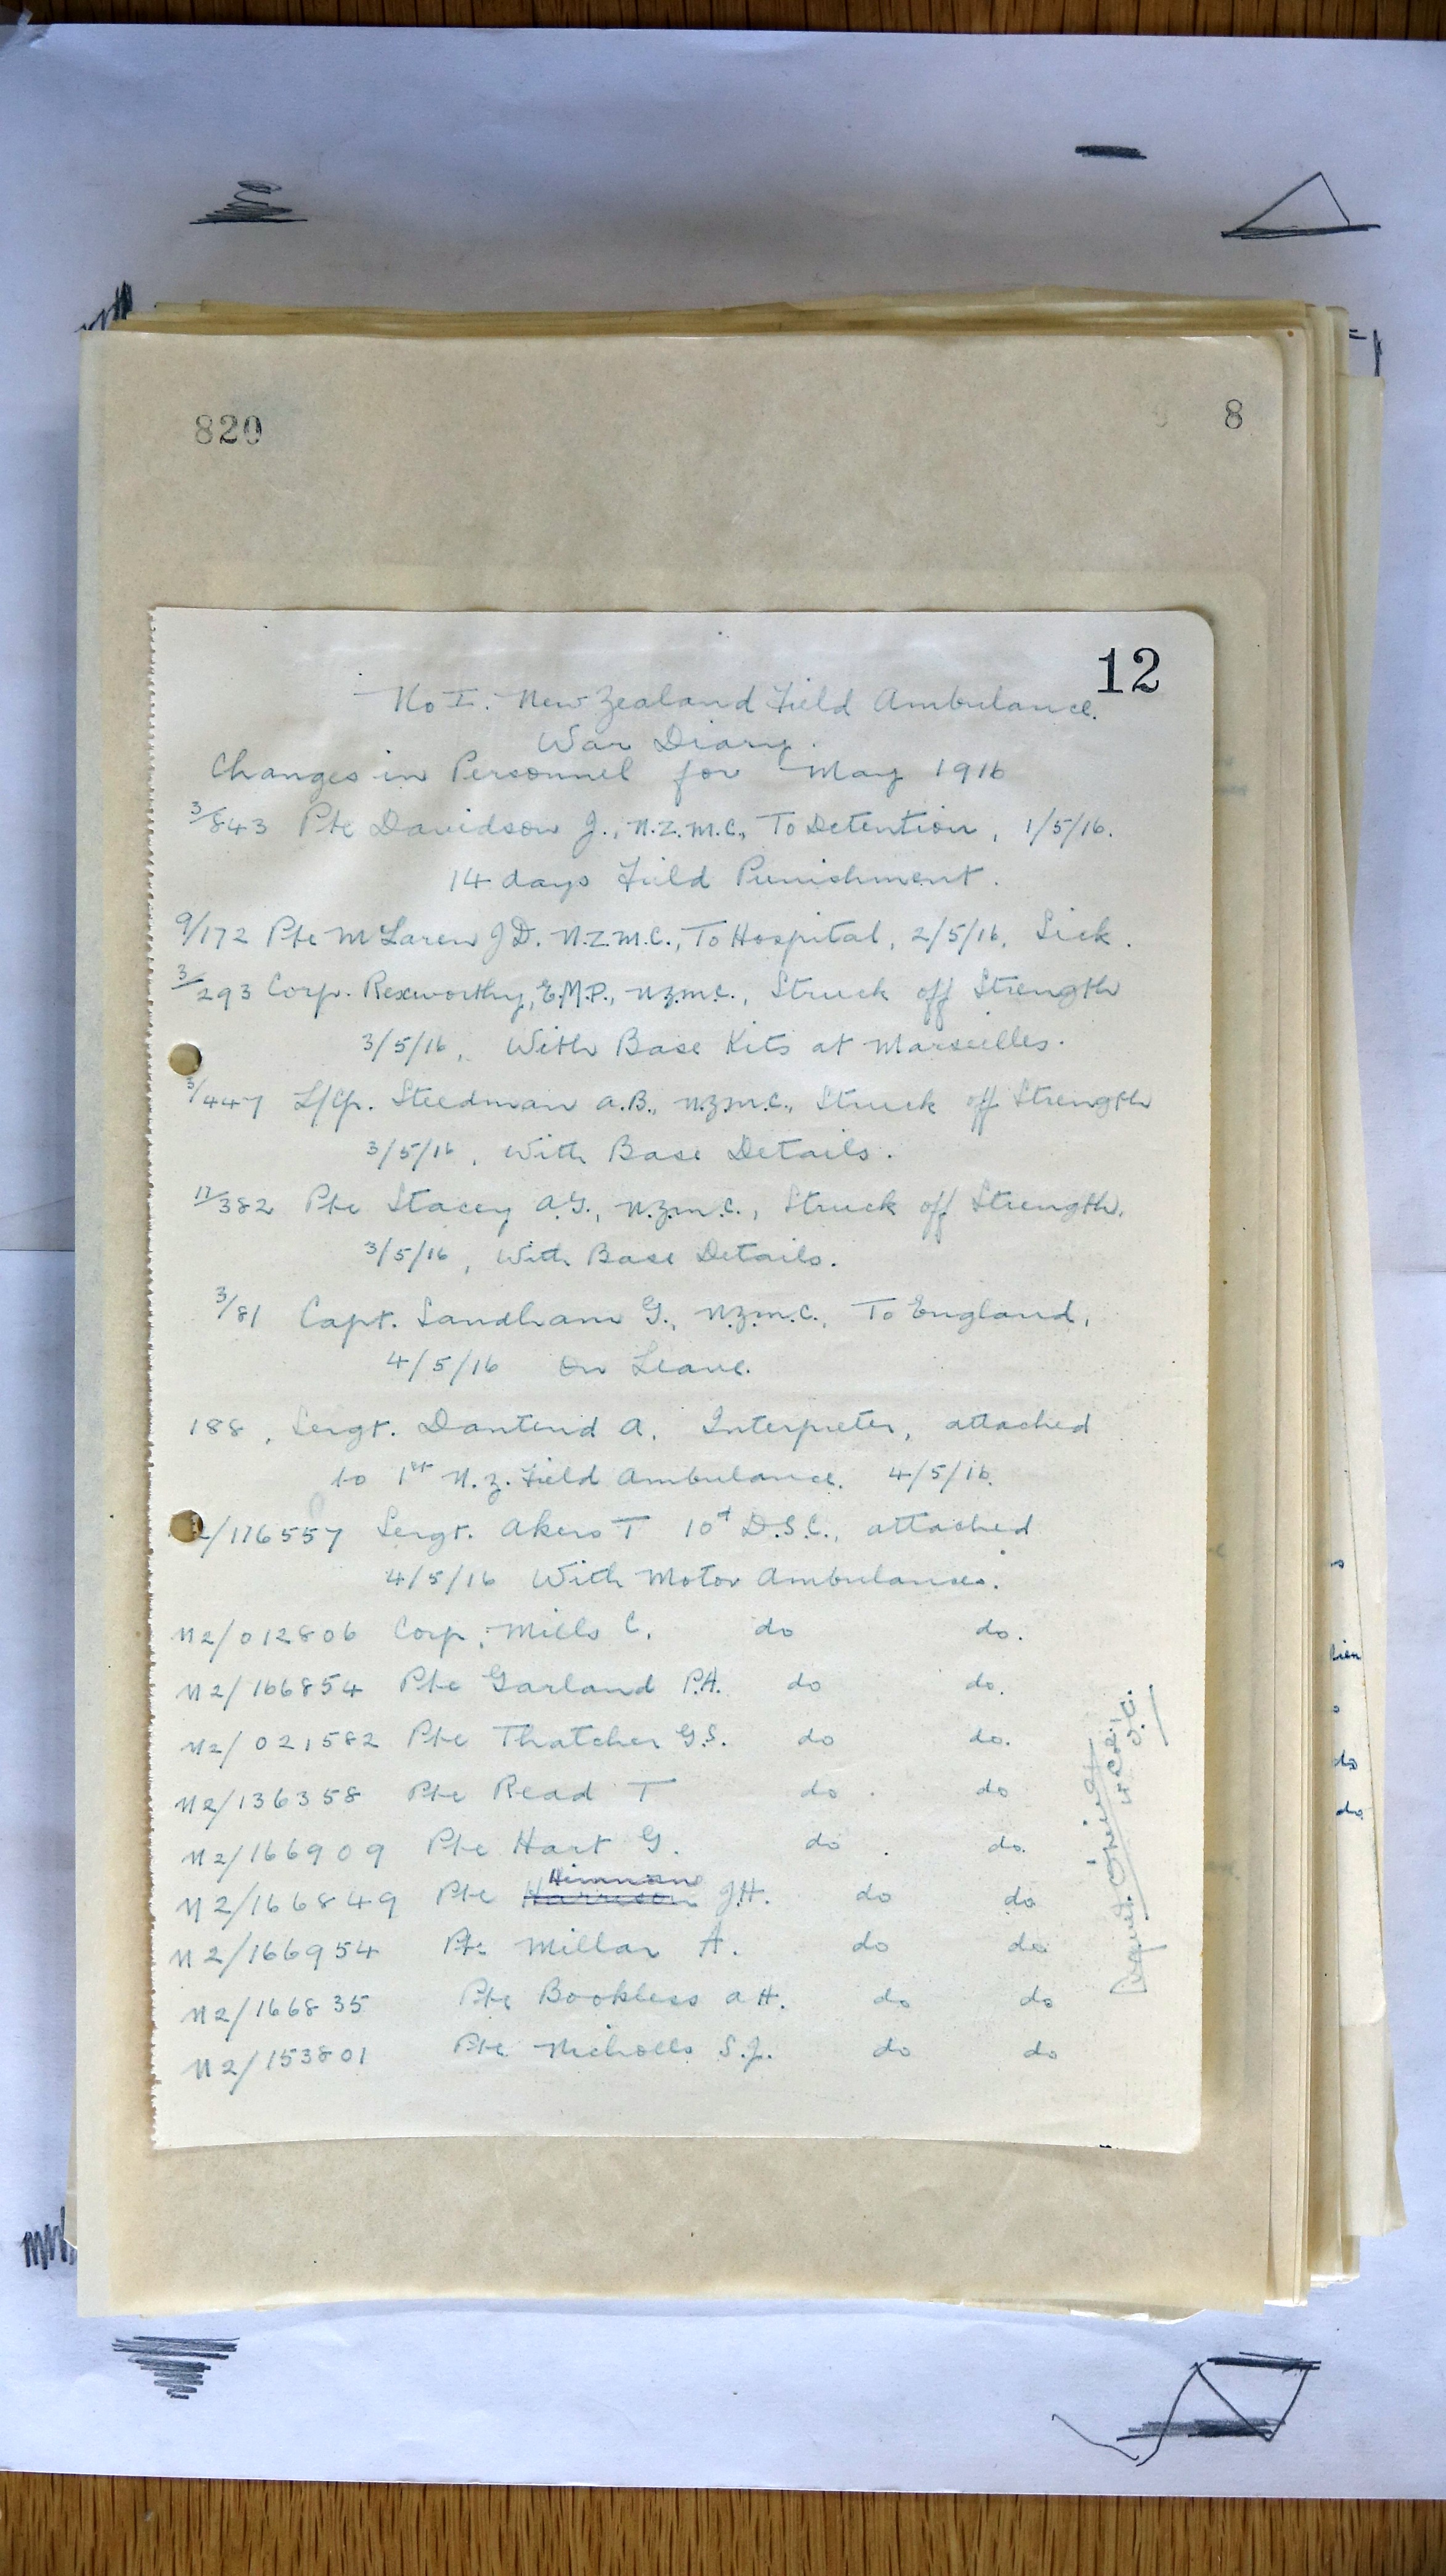 820
8
12
No I. New Zealand Field Ambulance.
War Diary.
Changes in Personnel for May 1916
3/843 Pte Davidson J., N.Z.M.C., To Detention, 1/5/16.
14 days Field Punishment.
9/172 Pte McLaren J D. N.Z.M.C., To Hospital, 2/5/16, Sick.
3/293 Corp. Rexworthy, E.M.P., N.Z.M.C., Struck off Strength
3/5/16, With Base Kits at Marseilles.
3/447 L/Cp. Steedman A.B., N.Z.M.C., Struck off Strength
3/5/16, With Base Details.
11/382 Pte Stacey A.G., N.Z.M.C., Struck off Strength.
3/5/16, With Base Details.
3/81 Capt. Sandham G., N.Z.M.C., To England,
4/5/16 On Leave.
188, Sergt. Dantend A. Interpreter, attached
to 1st N.Z. Field Ambulance. 4/5/16.
2/176557 Sergt. Akers T 10th D.S.C., attached
4/5/16 With Motor Ambulances.
M2/012806 Corp. Mills C. do do.
M2/166854 Pte Garland P.H. do do.
M2/021582 Pte Thatcher G.S. do do.
M2/136358 Pte Read T do. do
M2/166909 Pte Hart G. do. do.
Hinman
M2/166849 Pte Harrison J.H. do do
M2/166954 Pte Millar A. do do.
M2/166835 Pte Bookless A H. do do
M2/153801 Pte Nicholls S.J. do do
do
do